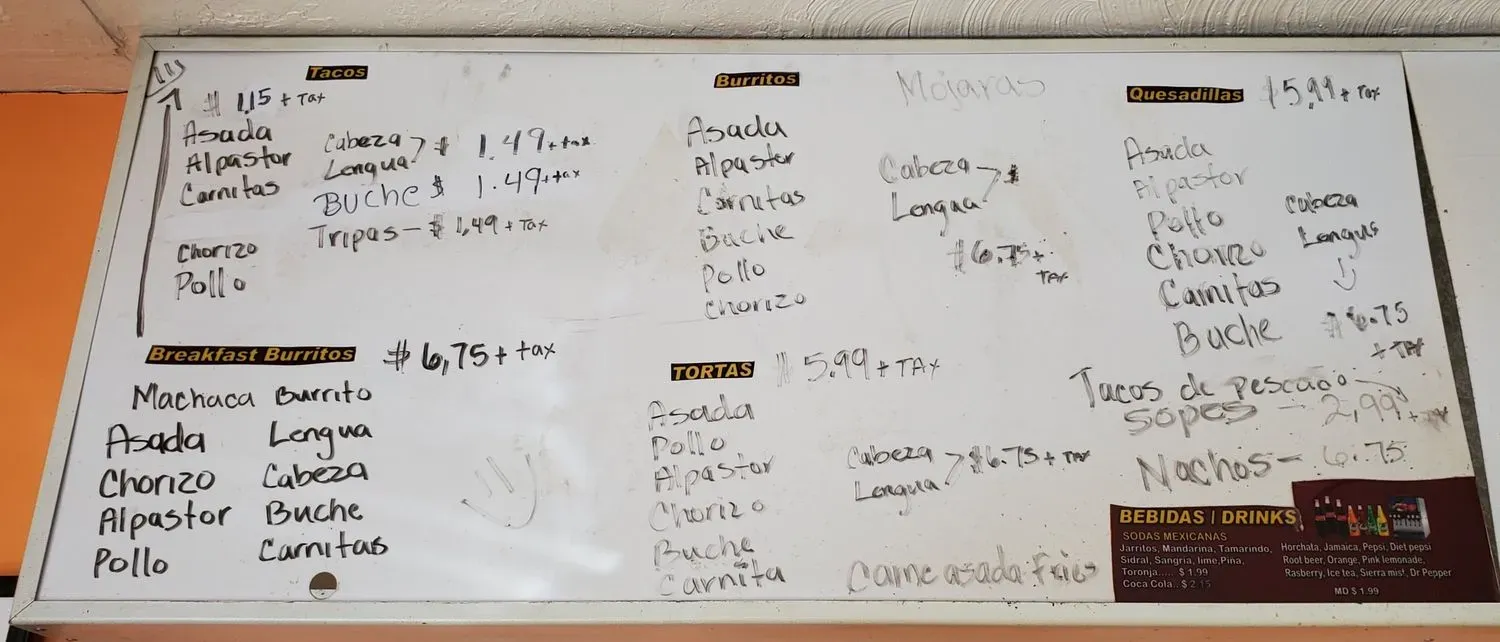 Tacos
$ 1.15 + Tax
Asada
Alpastor
Carnitas
Chorizo
Pollo
Cabeza
Lengua $ 1.49 + tax
BUCHE $ 1.49 + tax
Tripas - $ 1,49 + Tax
Breakfast Burritos $ 6,75 + tax
Machaca Burrito
Asada Lengua
Chorizo Cabeza
Alpastor Buche
Pollo Carnitas
Burritos
Asada
Alpastor
Carnitas
Buche
Pollo
Chorizo
Mojaras
Cabeza $
Lengua
$6.75 +
TAX
TORTAS $ 5.99 + TAX
Asada
Pollo
Alpastor
Chorizo
Buche
Carnita
Cabeza
Lengua $6.75 + TAX
Carne asada fries
Quesadillas $5,99 + Tax
Asada
Alpastor
Pollo
Chorizo
Carnitas
Buche
Cabeza
Lengua
$6.75
+ TAX
Tacos de pescado
SOPES - 2,99 + TAX
Nachos - 6.75
BEBIDAS / DRINKS
SODAS MEXICANAS
Jarritos, Mandarina, Tamarindo,
Sidral, Sangria, lime,Piña,
Toronja..... $ 1.99
Coca Cola.. $ 2.15
Horchata, Jamaica, Pepsi, Diet pepsi
Root beer, Orange, Pink lemonade,
Rasberry, Ice tea, Sierra mist, Dr Pepper
MD $ 1.99